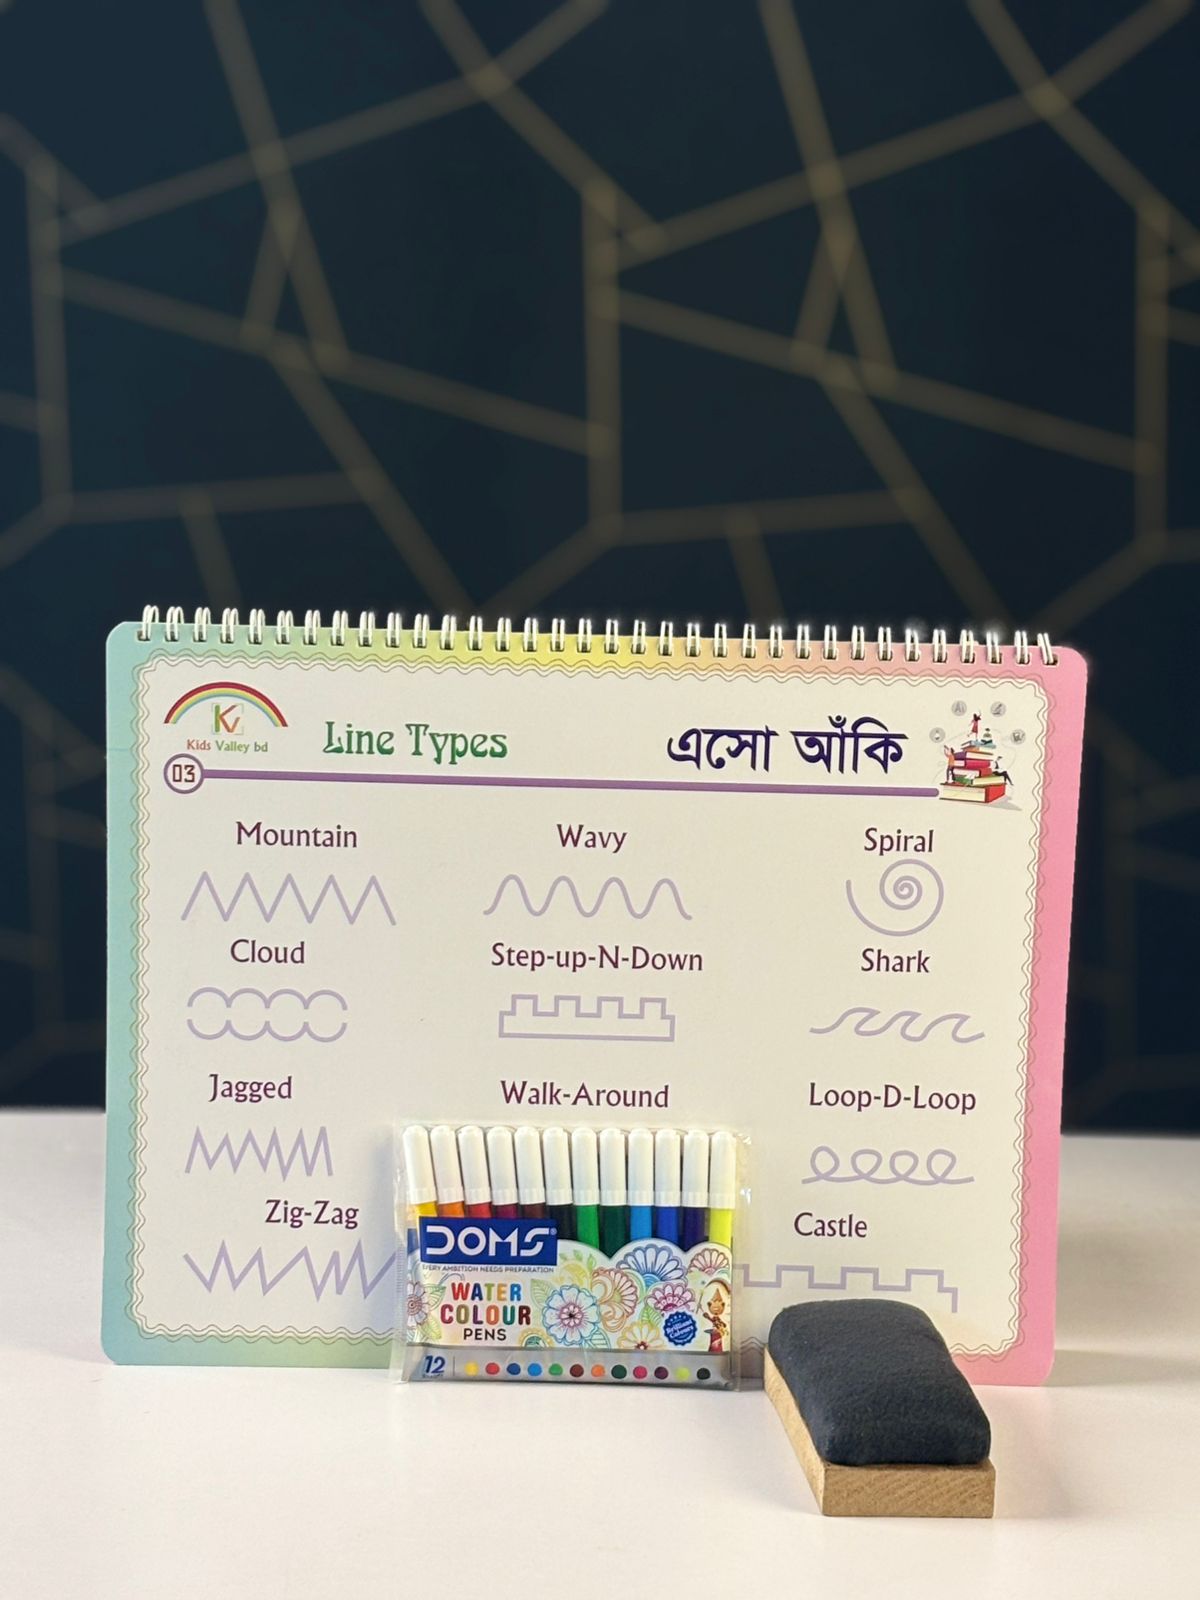 Kids Valley bd
Line Types
এসো আঁকি
03
Mountain
Wavy
Spiral
Cloud
Step-up-N-Down
Shark
Jagged
Walk-Around
Loop-D-Loop
Zig-Zag
Castle
DOMS®
EVERY AMBITION NEEDS PREPARATION
WATER
COLOUR
PENS
Brilliant
Colours
12